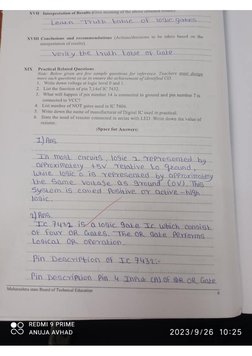 XVII Interpretation of Results (Give meaning of the above obtained results)
Learn Truth table of logic gates
XVIII Conclusions and recommendations (Actions/decisions to be taken based on the
interpretation of results).
Verify the truth table of Gate
XIX Practical Related Questions
Note: Below given are few sample questions for reference. Teachers must design
more such questions so as to ensure the achievement of identified CO.
1. Write down voltage at logic level 0 and 1.
2. List the function of pin 7,14 of IC 7432.
3. What will happen if pin number 14 is connected to ground and pin number 7 is
connected to VCC?
4. List number of NOT gates used in IC 7404.
5. Write down the name of manufacturer of Digital IC used in practical.
6. State the need of resistor connected in series with LED. Write down the value of
resistor.
(Space for Answer)
1) Ans.
In most circuits, logic 1 represented by
approximately +5v relative to ground,
while logic 0 is represented by approximately
the same voltage as ground (0V). This
system is called Positive or active-high
logic.
2) Ans.
IC 7432 is a logic gate IC which consist
of four OR Gates. The OR Gate Performs
Logical OR operation.
Pin Description of IC 7432:-
Pin Description Pin 1 Input (A) of OR Gate
Maharashtra state Board of Technical Education
REDMI 9 PRIME
ANUJA AVHAD
2023/9/26 10:25